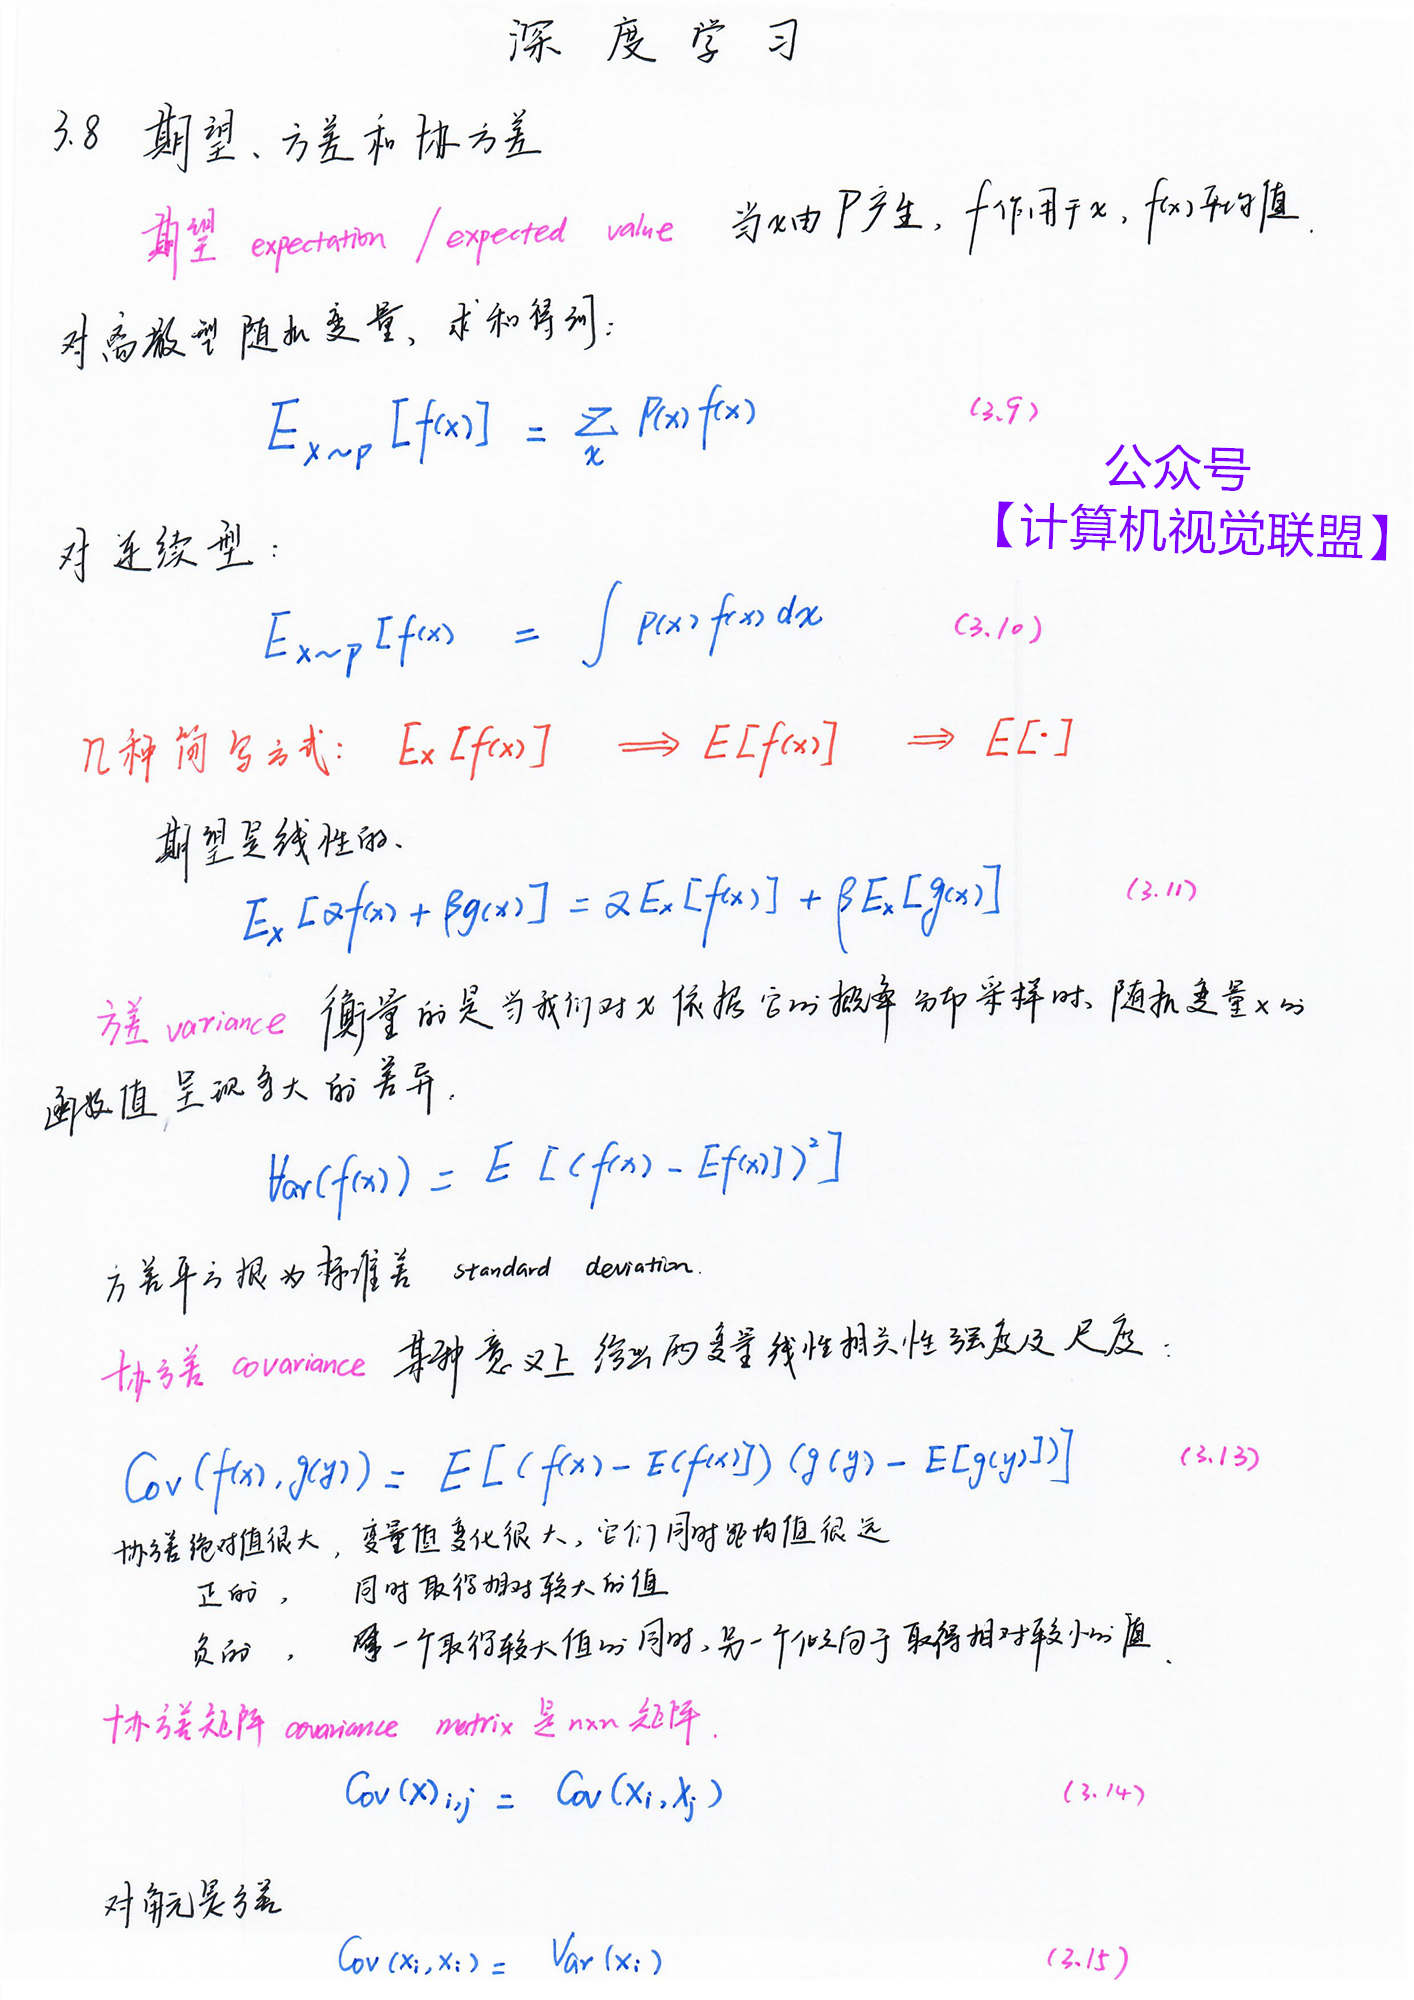 深度学习
3.8 期望、方差和协方差
期望 expectation / expected value 当x由P产生，f作用于x，f(x)平均值.
对离散型随机变量，求和得到:
E_{x~p} [f(x)] = Σ_x P(x) f(x) (3.9)
公众号
【计算机视觉联盟】
对连续型:
E_{x~p} [f(x) = ∫ p(x) f(x) dx (3.10)
几种简写方式: E_x [f(x)] ⟹ E[f(x)] ⟹ E[·]
期望是线性的、
E_x [αf(x) + βg(x)] = αE_x [f(x)] + βE_x [g(x)] (3.11)
方差 variance 衡量的是当我们对x依据它的概率分布采样时、随机变量x的
函数值呈现多大的差异.
Var(f(x)) = E [(f(x) - Ef(x)])²]
方差平方根为标准差 standard deviation.
协方差 covariance 某种意义上给出两变量线性相关性强度及尺度:
Cov(f(x), g(y)) = E[(f(x) - E(f(x)])(g(y) - E[g(y)])] (3.13)
协方差绝对值很大，变量值变化很大，它们同时距均值很远
正的， 同时取得相对较大的值
负的， 一个取得较大值的同时，另一个倾向于取得相对较小的值.
协方差矩阵 covariance matrix 是n×n矩阵.
Cov(X)_{i,j} = Cov(X_i, X_j) (3.14)
对角元是方差
Cov(x_i, x_i) = Var(x_i) (3.15)